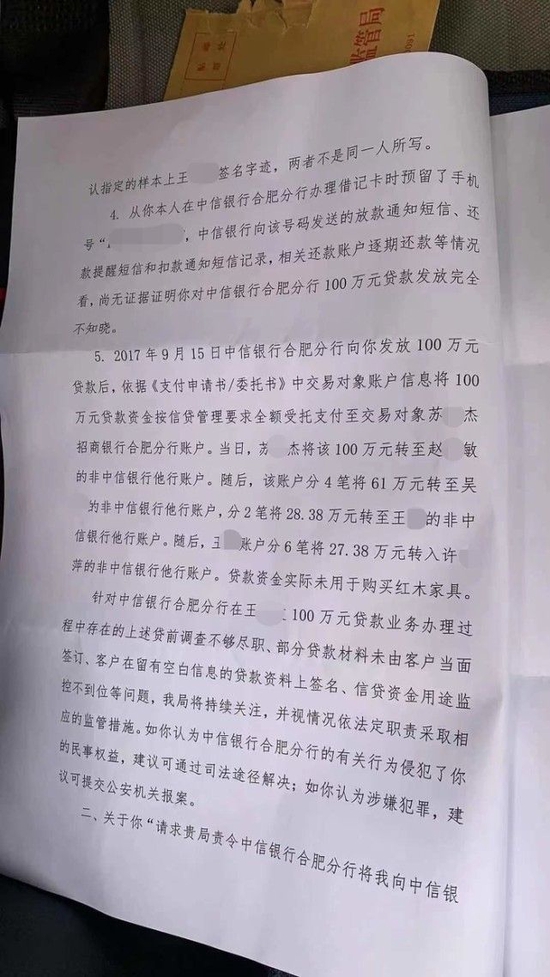 监管局
认指定的样本上王 签名字迹，两者不是同一人所写。
4. 从你本人在中信银行合肥分行办理借记卡时预留了手机
号“ ，中信银行向该号码发送的放款通知短信、还
款提醒短信和扣款通知短信记录，相关还款账户逐期还款等情况
看，尚无证据证明你对中信银行合肥分行 100 万元贷款发放完全
不知晓。
5. 2017 年 9 月 15 日中信银行合肥分行向你发放 100 万元
贷款后，依据《支付申请书/委托书》中交易对象账户信息将 100
万元贷款资金按信贷管理要求全额受托支付至交易对象苏 杰
招商银行合肥分行账户。当日，苏 杰将该 100 万元转至赵 敏
的非中信银行他行账户。随后，该账户分 4 笔将 61 万元转至吴
的非中信银行他行账户，分 2 笔将 28.38 万元转至王 的非中
信银行他行账户。随后，王 账户分 6 笔将 27.38 万元转入许
萍的非中信银行他行账户。贷款资金实际未用于购买红木家具。
针对中信银行合肥分行在王 100 万元贷款业务办理过
程中存在的上述贷前调查不够尽职、部分贷款材料未由客户当面
签订、客户在留有空白信息的贷款资料上签名、信贷资金用途监
控不到位等问题，我局将持续关注，并视情况依法定职责采取相
应的监管措施。如你认为中信银行合肥分行的有关行为侵犯了你
的民事权益，建议可通过司法途径解决；如你认为涉嫌犯罪，建
议可提交公安机关报案。
二、关于你“请求贵局责令中信银行合肥分行将我向中信银